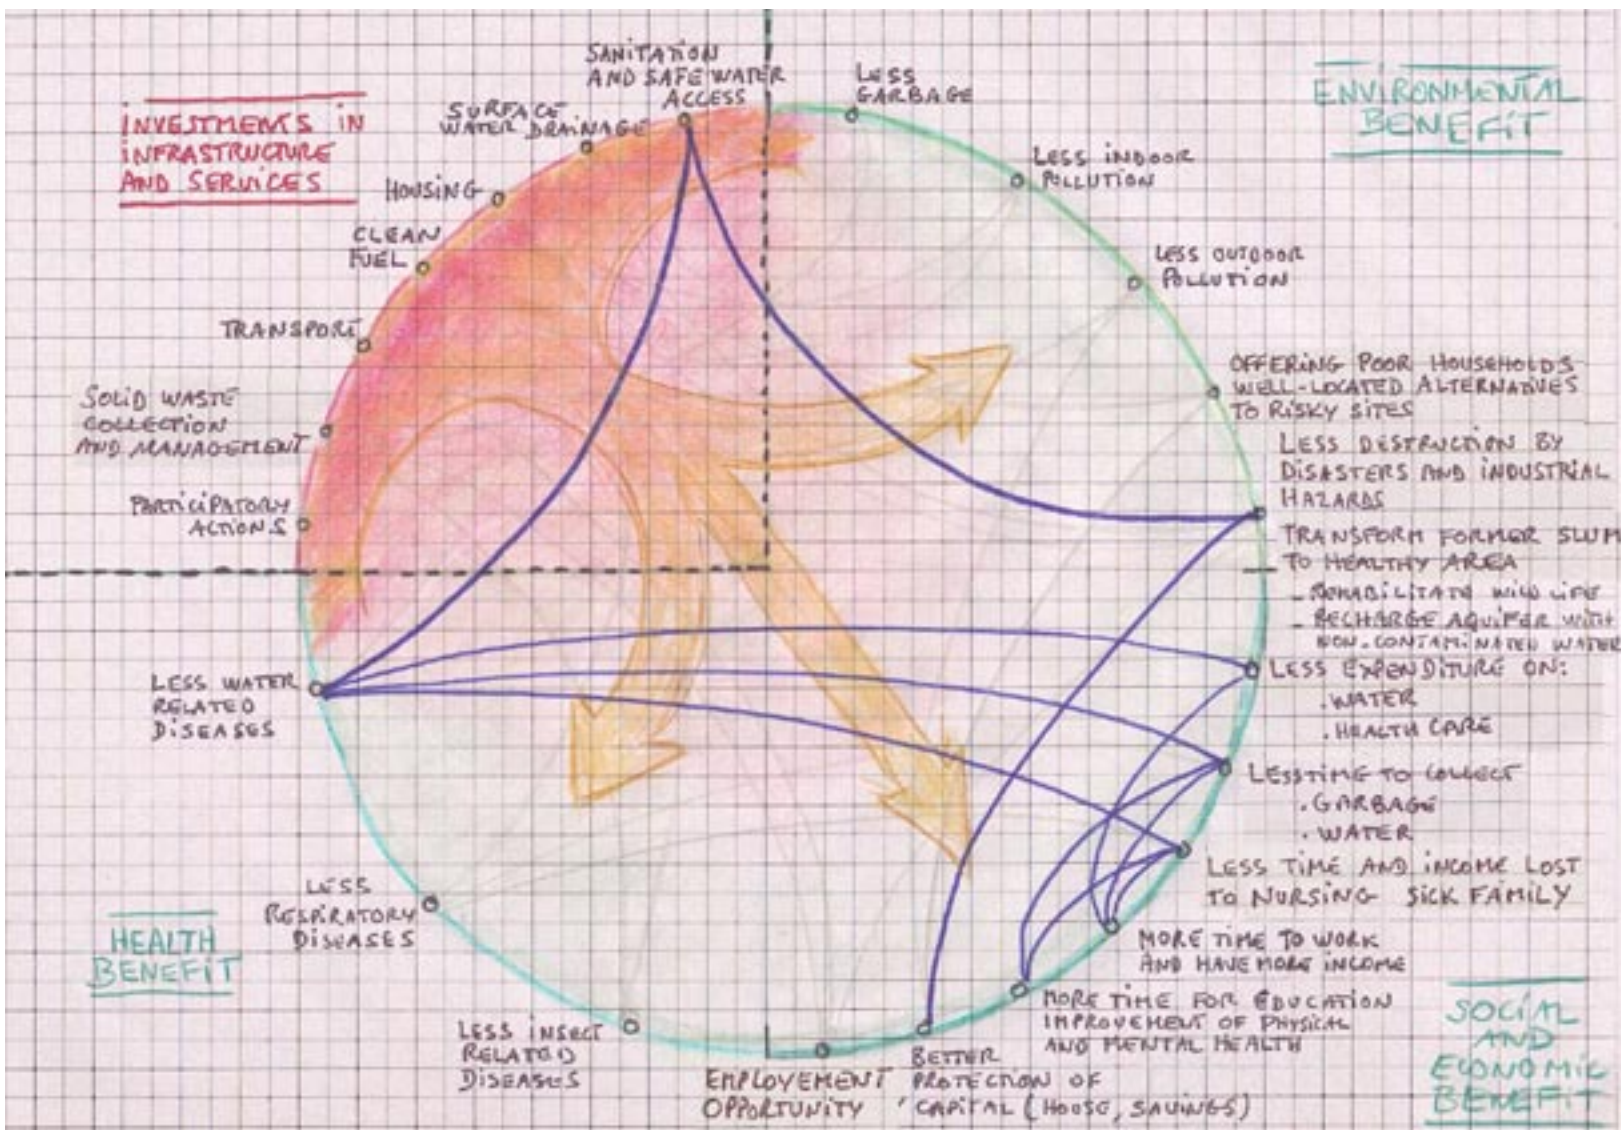 INVESTMENTS IN
INFRASTRUCTURE
AND SERVICES
SANITATION
AND SAFE WATER
ACCESS
SURFACE
WATER DRAINAGE
HOUSING
CLEAN
FUEL
TRANSPORT
SOLID WASTE
COLLECTION
AND MANAGEMENT
PARTICIPATORY
ACTIONS
ENVIRONMENTAL
BENEFIT
LESS
GARBAGE
LESS INDOOR
POLLUTION
LESS OUTDOOR
POLLUTION
OFFERING POOR HOUSEHOLDS
WELL-LOCATED ALTERNATIVES
TO RISKY SITES
LESS DESTRUCTION BY
DISASTERS AND INDUSTRIAL
HAZARDS
TRANSFORM FORMER SLUM
TO HEALTHY AREA
- REHABILITATE WILD LIFE
- RECHARGE AQUIFER WITH
NON-CONTAMINATED WATER
LESS EXPENDITURE ON:
. WATER
. HEALTH CARE
LESS TIME TO COLLECT
. GARBAGE
. WATER
LESS TIME AND INCOME LOST
TO NURSING SICK FAMILY
MORE TIME TO WORK
AND HAVE MORE INCOME
MORE TIME FOR EDUCATION
IMPROVEMENT OF PHYSICAL
AND MENTAL HEALTH
BETTER
PROTECTION OF
CAPITAL (HOUSE, SAVINGS)
EMPLOYEMENT
OPPORTUNITY
SOCIAL
AND
ECONOMIC
BENEFIT
LESS WATER
RELATED
DISEASES
LESS
RESPIRATORY
DISEASES
LESS INSECT
RELATED
DISEASES
HEALTH
BENEFIT